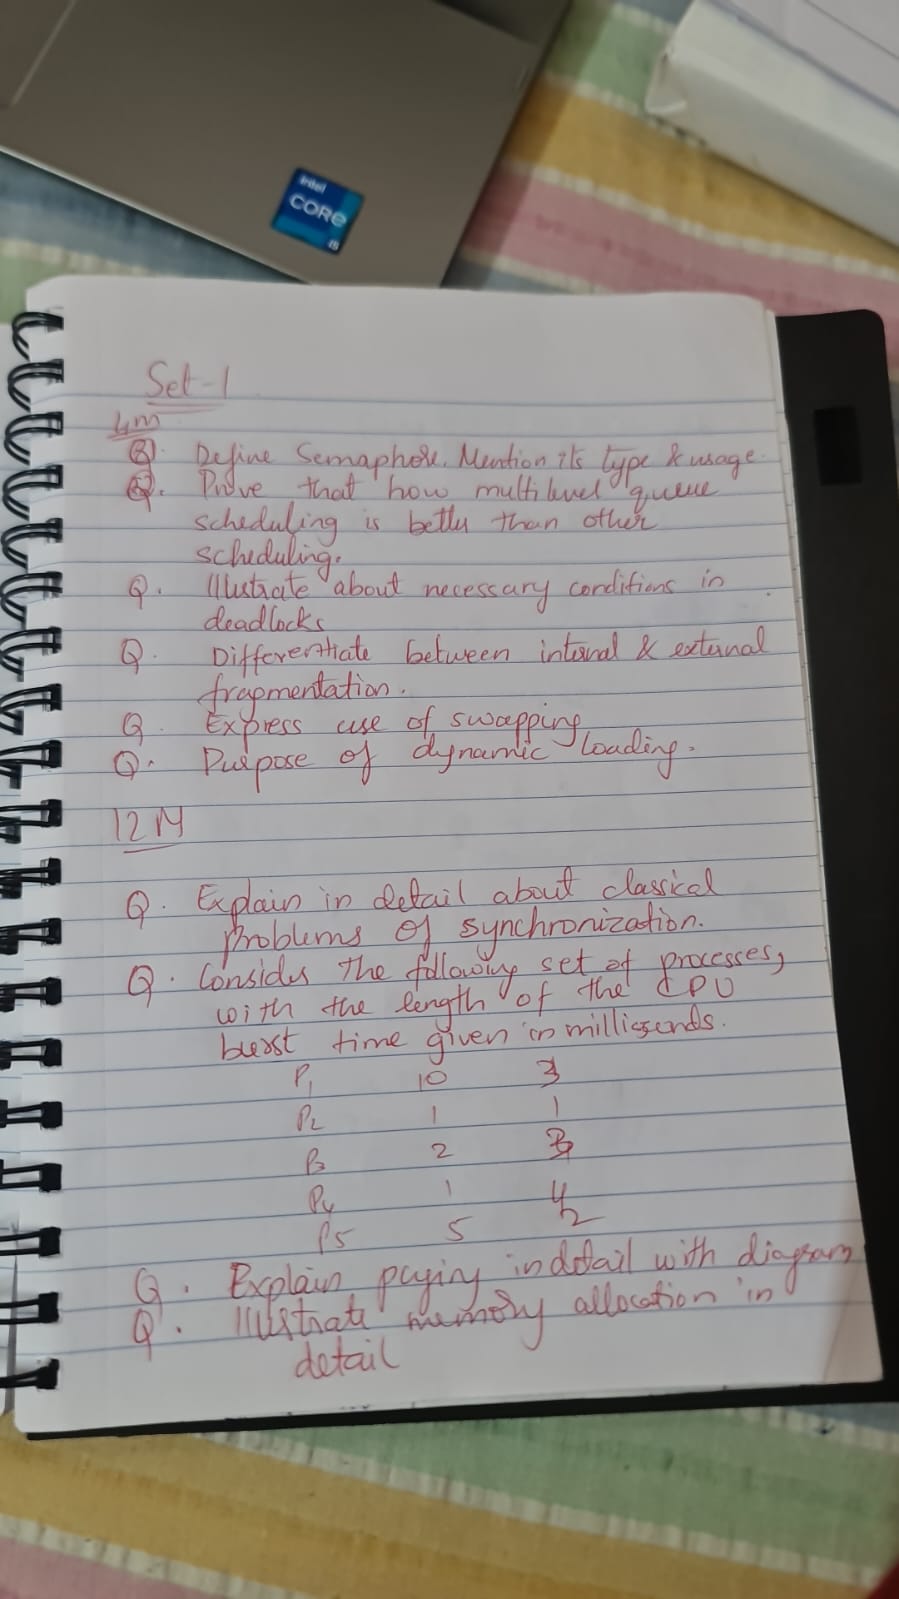 intel
CORE
i5
Set-1
4m
Q. Define Semaphore. Mention its type & usage.
Q. Prove that how multilevel queue
scheduling is better than other
scheduling.
Q. Illustrate about necessary conditions in
deadlocks
Q. Differentiate between internal & external
fragmentation.
Q. Express use of swapping
Q. Purpose of dynamic loading.
12M
Q. Explain in detail about classical
problems of synchronization.
Q. Consider the following set of processes,
with the length of the CPU
burst time given in
P1 10 3
P2 1 1
P3 2
P4 1 4
P5 5 2
Q. Explain paging in detail with diagram
Q. Illustrate memory allocation in
detail